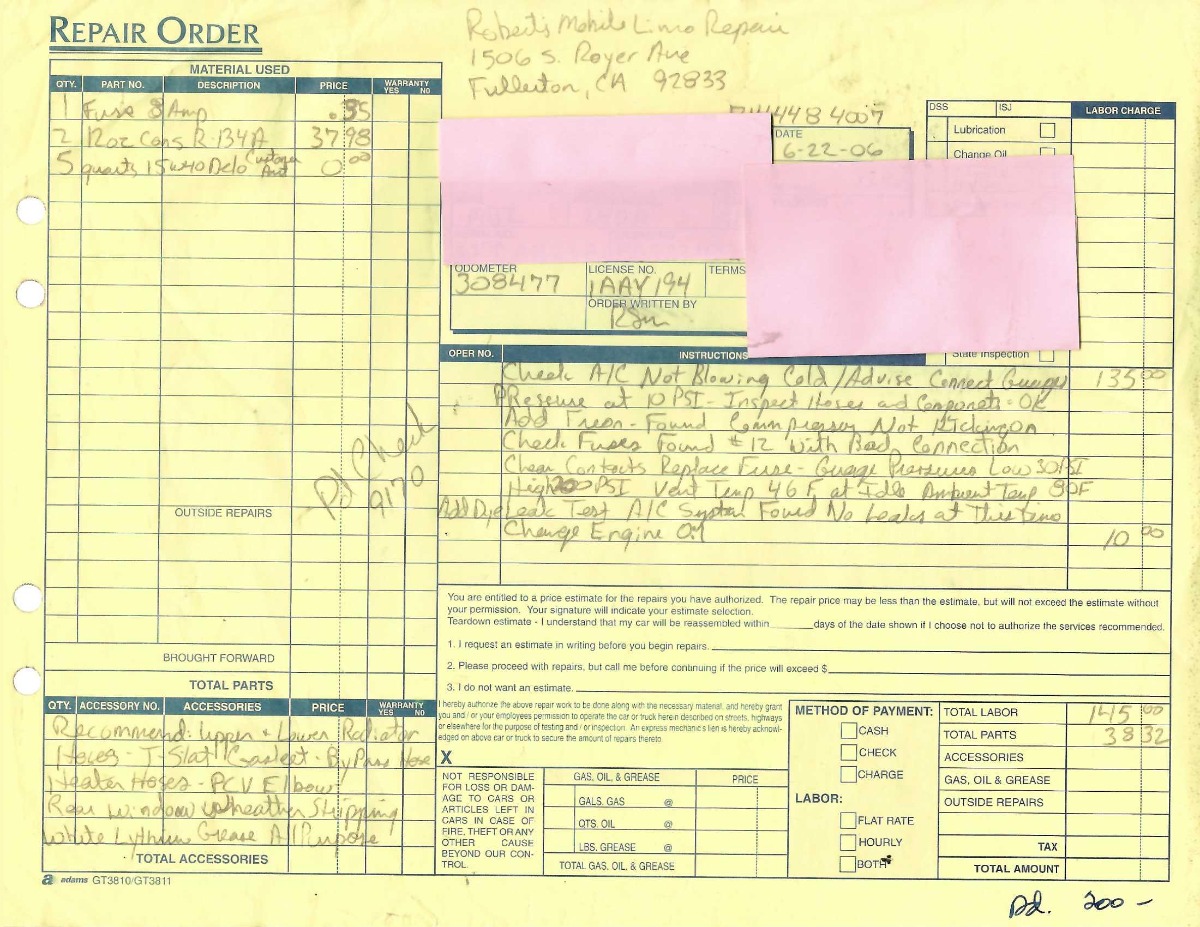 REPAIR ORDER
Robert's Mobile Limo Repair
1506 S. Royer Ave
Fullerton, CA 92833
448 4007
MATERIAL USED
QTY. PART NO. DESCRIPTION PRICE WARRANTY YES NO
1 Fuse 8 Amp .35
2 12oz Cans R-134A 37.98
5 quarts 15w40 Delo Customer 0 00
DATE
6-22-06
DSS ISJ
LABOR CHARGE
Lubrication
Change Oil
State Inspection
ODOMETER LICENSE NO. TERMS
308477 1AAY194
ORDER WRITTEN BY
OPER NO. INSTRUCTIONS
Check A/C Not Blowing Cold / Advise Connect Guages 135 00
PReseuse at 10 PSI - Inspect Hoses and Componets - OK
Add Freon - Found Commpressor Not Kicking on
Check Fuses Found #12 With Bad Connection
Clean Contacts Replace Fuse - Guage Pressures Low 30 PSI
High 200 PSI Vent Temp 46 F at Idle Ambient Temp 90F
Add Dye Leak Test A/C System Found No Leaks at This time
Change Engine Oil 10 00
Pd Check
9170
OUTSIDE REPAIRS
BROUGHT FORWARD
TOTAL PARTS
You are entitled to a price estimate for the repairs you have authorized. The repair price may be less than the estimate, but will not exceed the estimate without
your permission. Your signature will indicate your estimate selection.
Teardown estimate - I understand that my car will be reassembled within ______ days of the date shown if I choose not to authorize the services recommended.
1. I request an estimate in writing before you begin repairs.
2. Please proceed with repairs, but call me before continuing if the price will exceed $
3. I do not want an estimate.
QTY. ACCESSORY NO. ACCESSORIES PRICE WARRANTY YES NO
Recommend: upper + Lower Radiator
Hoses - T-Stat Gasket - By Pass Hose
Heater Hoses - PCV Elbow
Rear Window Wheather Stripping
White Lythium Grease All Purpose
TOTAL ACCESSORIES
adams GT3810/GT3811
I hereby authorize the above repair work to be done along with the necessary material, and hereby grant
you and / or your employees permission to operate the car or truck herein described on streets, highways
or elsewhere for the purpose of testing and / or inspection. An express mechanic's lien is hereby acknowl-
edged on above car or truck to secure the amount of repairs thereto.
X
NOT RESPONSIBLE
FOR LOSS OR DAM-
AGE TO CARS OR
ARTICLES LEFT IN
CARS IN CASE OF
FIRE, THEFT OR ANY
OTHER CAUSE
BEYOND OUR CON-
TROL.
GAS, OIL, & GREASE PRICE
GALS. GAS @
QTS. OIL @
LBS. GREASE @
TOTAL GAS, OIL, & GREASE
METHOD OF PAYMENT:
CASH
CHECK
CHARGE
LABOR:
FLAT RATE
HOURLY
BOTH
TOTAL LABOR 145 00
TOTAL PARTS 38 32
ACCESSORIES
GAS, OIL & GREASE
OUTSIDE REPAIRS
TAX
TOTAL AMOUNT
Pd. 200 -